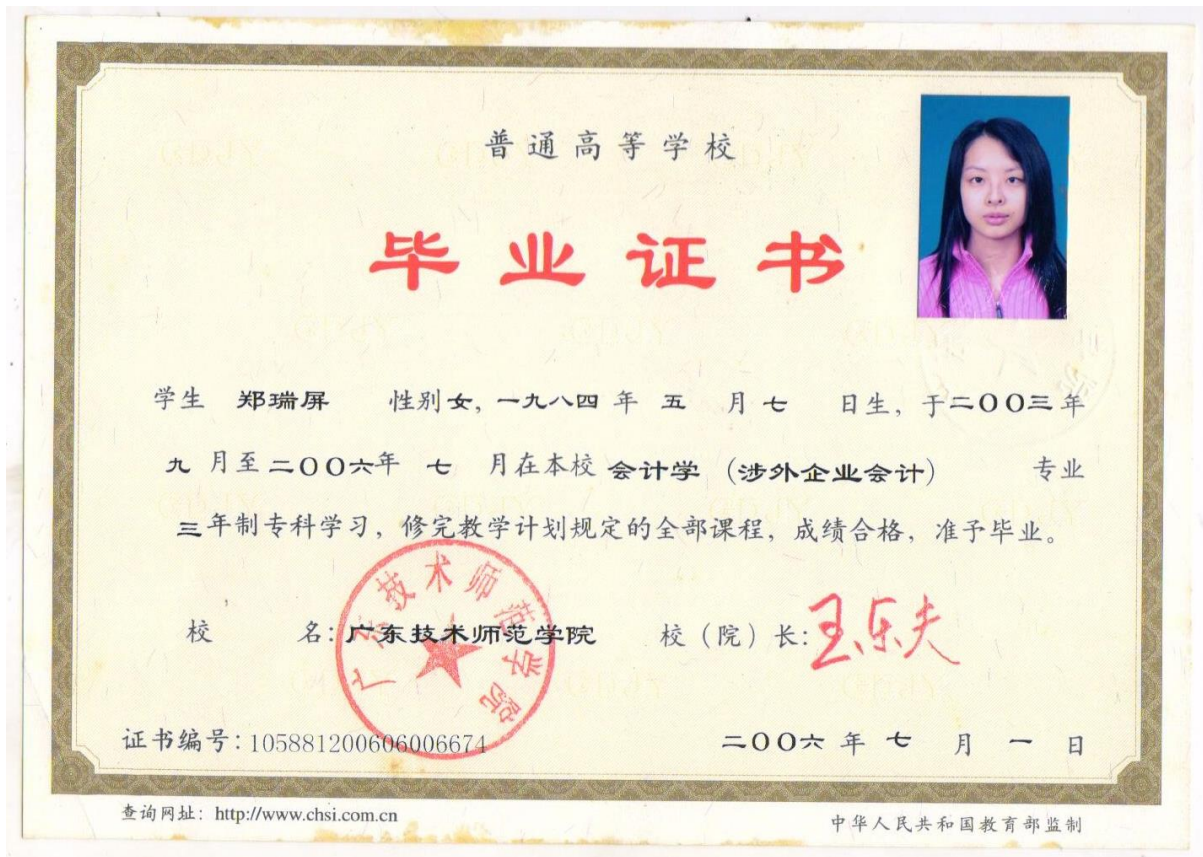 普通高等学校
毕业证书
学生 郑瑞屏 性别女,一九八四年五月七日生,于二OO三年
九月至二OO六年七月在本校会计学(涉外企业会计)专业
三年制专科学习,修完教学计划规定的全部课程,成绩合格,准予毕业。
广东技术师范学院
校名:广东技术师范学院 校(院)长:王乐夫
证书编号:105881200606006674 二OO六年七月一日
查询网址:http://www.chsi.com.cn 中华人民共和国教育部监制